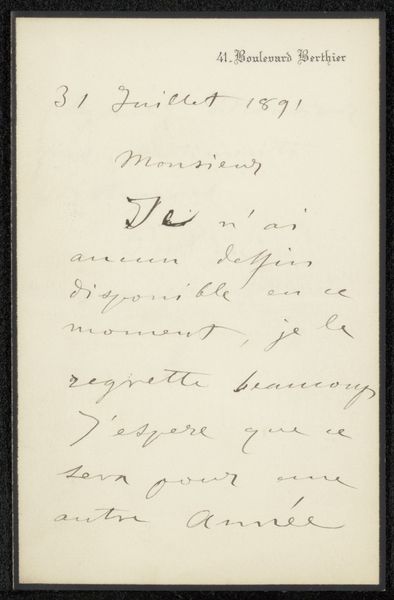 41. Boulevard Berthier
31 Juillet 1891
Monsieur
Je n'ai
aucun dessin
disponible en ce
moment, je le
regrette beaucoup
J'espere que ce
sera pour une
autre Année